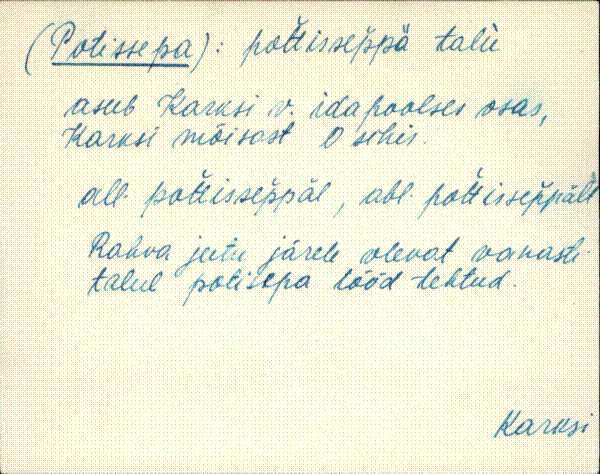 (Potissepa): poťtisseppä talu
asub Karksi v. idapoolses osas,
Karksi mõisast O sihis.
all. poťtisseppäl, abl. poťtisseppält
Rahva jutu järele olevat vanasti
talul potisepa tööd tehtud.
Karksi